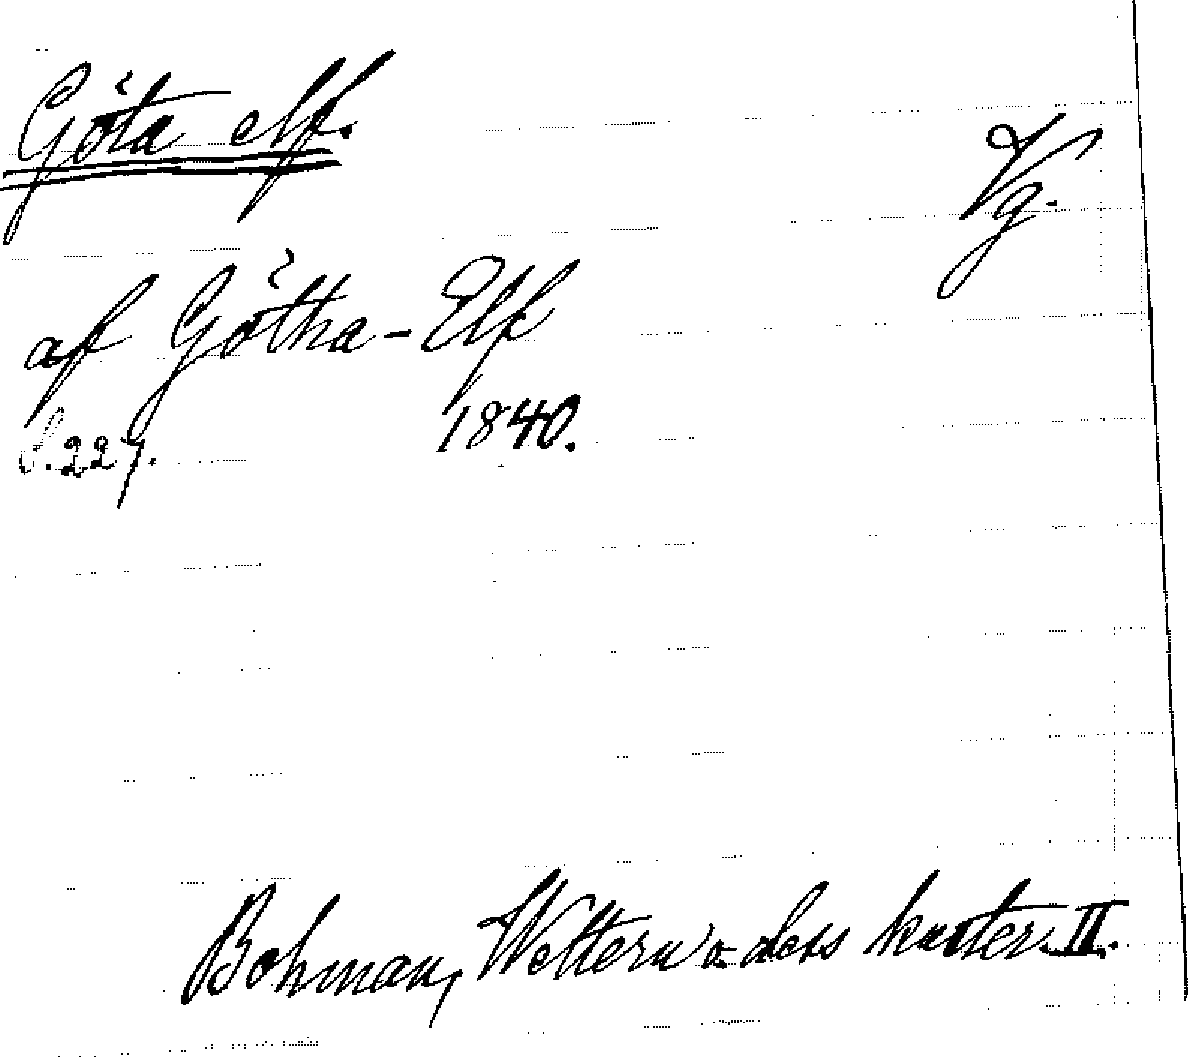 Göta elf.
Vg.
af Götha-Elf
S. 227. 1840.
Bohman, Wettern o. dess kuster. II.